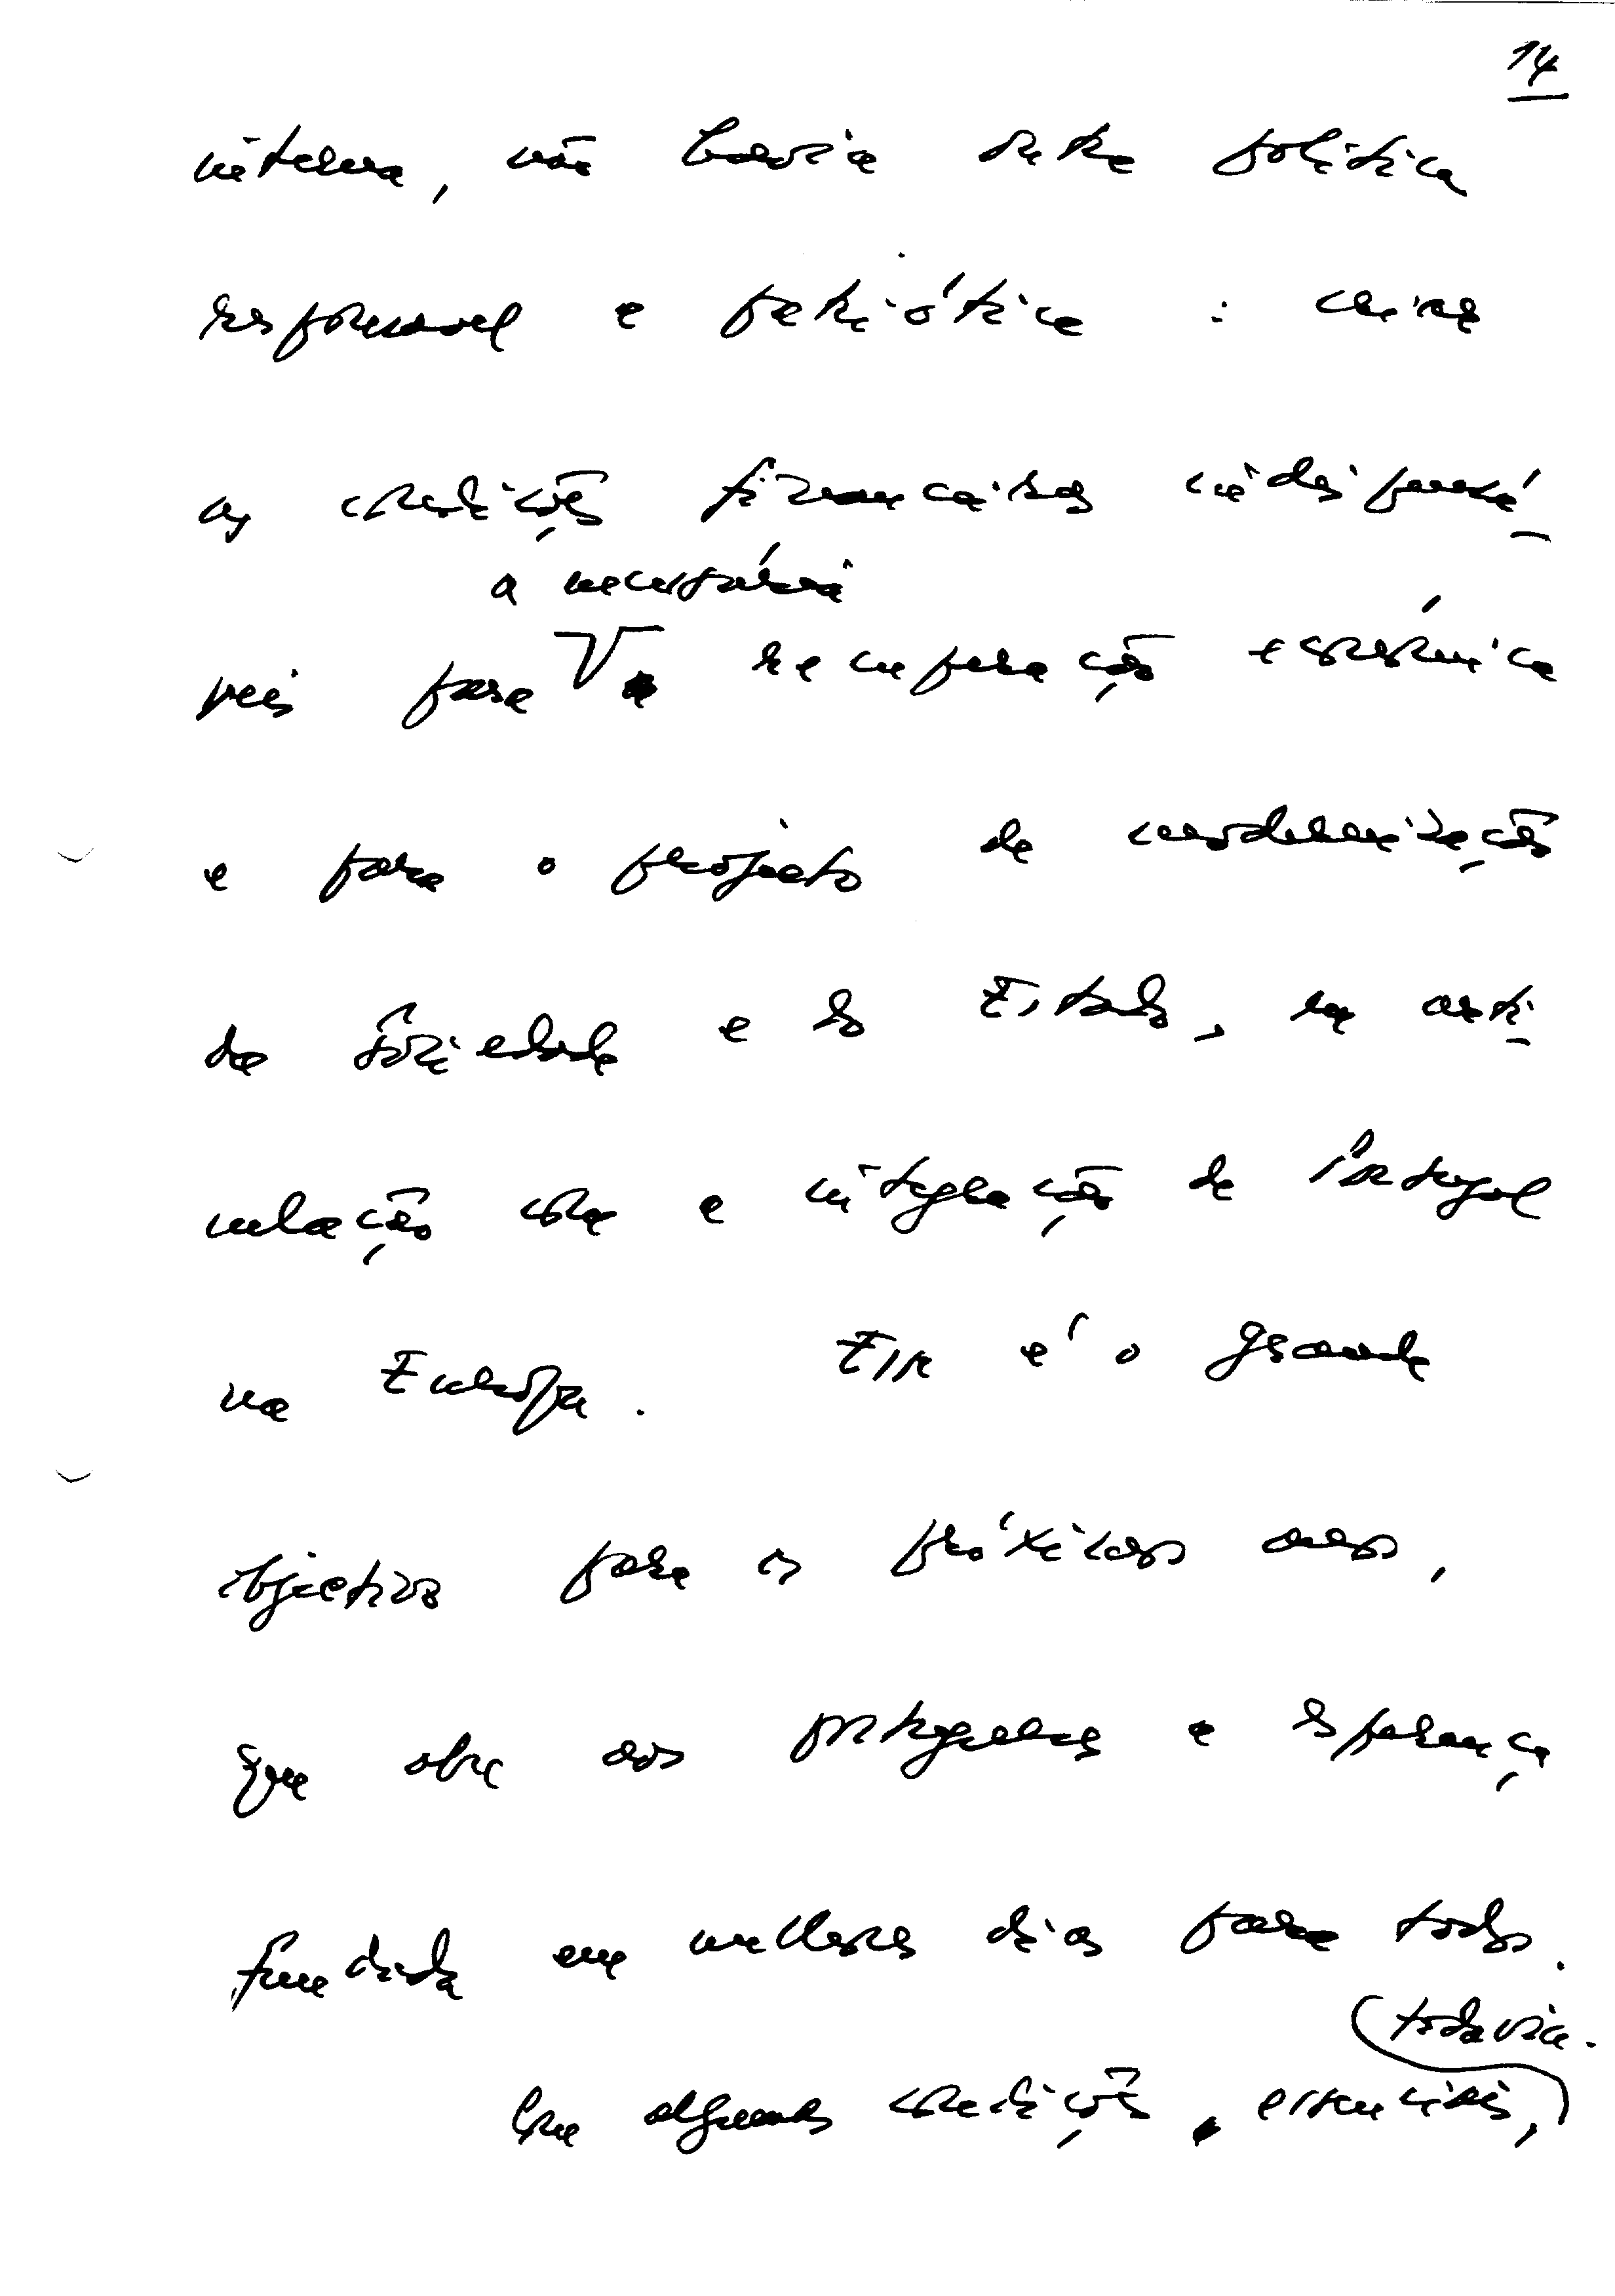 14
interna, não havia outra política
responsável e patriótica : criar
as condições financeiras indispensá-
a necessária
veis para recuperação económica
e para o projecto de modernização
da Sociedade e do Estado, na arti-
culação com a integração de Portugal
na Europa. Esse é o grande
objectivo para os próximos anos,
que abre aos portugueses a esperança
fundada em melhores dias para todos.
todavia.
Com algumas condições, essenciais,